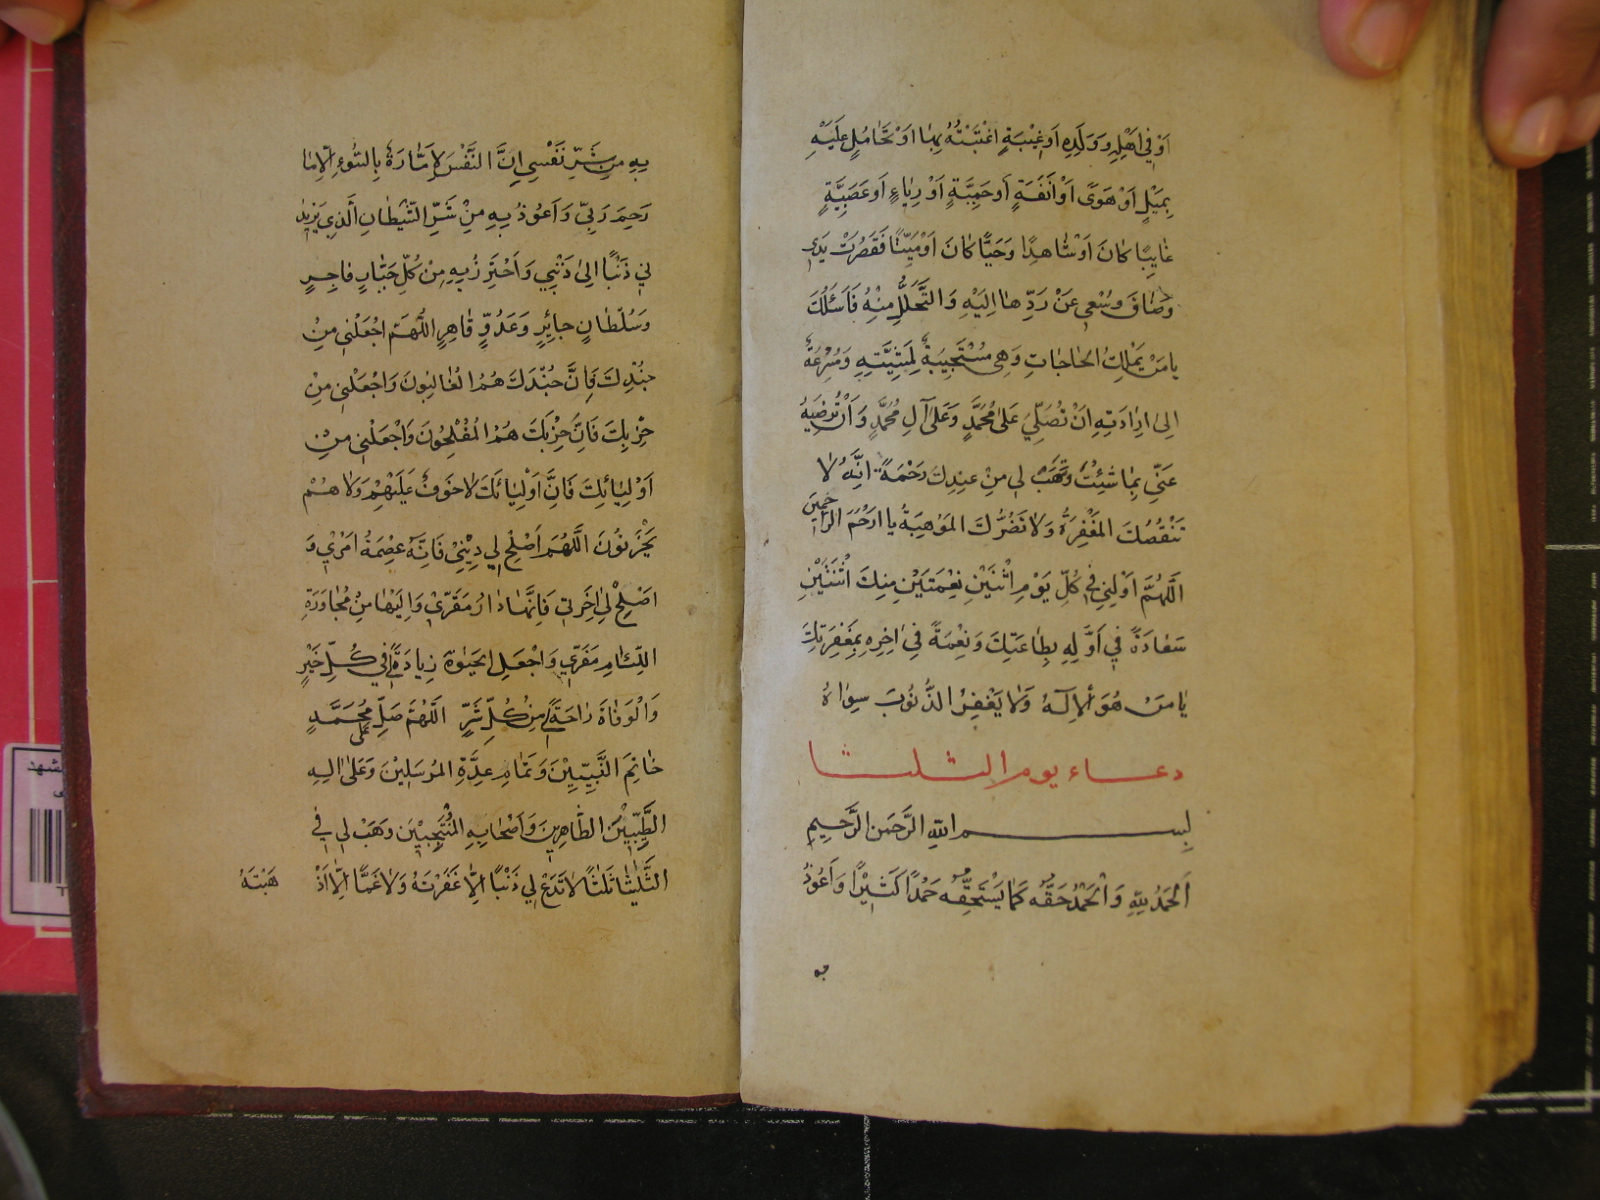 اَوْ فِي اَهْلِهِ وَوَلَدِهِ اَوْ غِيْبَةٍ اغْتَبْتُهُ بِهٰا اَوْ تَحٰامُلٍ عَلَيْهِ
بِمَيْلٍ اَوْ هَوىً اَوْ اَنَفَةٍ اَوْ حَمِيَّةٍ اَوْ رِيٰاءٍ اَوْ عَصَبِيَّةٍ
غٰايِبًا كٰانَ اَوْ شٰاهِدًا وَحَيًّا كٰانَ اَوْ مَيِّتًا فَقَصُرَتْ يَدي
وَضٰاقَ وُسْعي عَنْ رَدِّهٰا اِلَيْهِ وَالتَّحَلُّلِ مِنْهُ فَاَسْئَلُكَ
يٰا مَنْ يَمْلِكُ الْحٰاجٰاتِ وَهِيَ مُسْتَجِيبَةٌ لِمَشِيَّتِهِ وَمُسْرِعَةٌ
اِلىٰ اِرٰادَتِهِ اَنْ تُصَلِّيَ عَلىٰ مُحَمَّدٍ وَعَلىٰ آلِ مُحَمَّدٍ وَاَنْ تُرْضِيَهُ
عَنِّي بِمٰا شِئْتَ وَتَهَبَ لي مِنْ عِنْدِكَ رَحْمَةً اِنَّهُ لٰا
تَنْقُصُكَ الْمَغْفِرَةُ وَلٰا تَضُرُّكَ الْمَوْهِبَةُ يٰا اَرْحَمَ الرّٰاحِمينَ
اَللّٰهُمَّ اَوْلِنِي في كُلِّ يَوْمِ اثْنَيْنِ نِعْمَتَيْنِ مِنْكَ اثْنَتَيْنِ
سَعٰادَةً في اَوَّلِهِ بِطٰاعَتِكَ وَنِعْمَةً في اٰخِرِهِ بِمَغْفِرَتِكَ
يٰا مَنْ هُوَ الْاِلٰهُ وَلٰا يَغْفِرُ الذُّنُوبَ سِوٰاهُ
دعاء يوم الثلثا
بِسْمِ اللهِ الرَّحْمٰنِ الرَّحِيمِ
اَلْحَمْدُ لِلّٰهِ وَالْحَمْدُ حَقُّهُ كَمٰا يَسْتَحِقُّهُ حَمْدًا كَثِيْرًا وَاَعُوذُ
به
بِهِ مِنْ شَرِّ نَفْسِي اِنَّ النَّفْسَ لَاَمّٰارَةٌ بِالسُّوءِ اِلّٰا مٰا
رَحِمَ رَبّي وَاَعُوذُ بِهِ مِنْ شَرِّ الشَّيْطٰانِ الَّذي يَزِيدُ
ني ذَنْبًا اِلىٰ ذَنْبي وَاَحْتَرِزُ بِهِ مِنْ كُلِّ جَبّٰارٍ فٰاجِرٍ
وَسُلْطٰانٍ جٰائِرٍ وَعَدُوٍّ قٰاهِرٍ اَللّٰهُمَّ اجْعَلْني مِنْ
جُنْدِكَ فَاِنَّ جُنْدَكَ هُمُ الْغٰالِبُونَ وَاجْعَلْني مِنْ
حِزْبِكَ فَاِنَّ حِزْبَكَ هُمُ الْمُفْلِحُونَ وَاجْعَلْني مِنْ
اَوْلِيٰائِكَ فَاِنَّ اَوْلِيٰائَكَ لٰا خَوْفٌ عَلَيْهِمْ وَلٰا هُمْ
يَحْزَنُونَ اَللّٰهُمَّ اَصْلِحْ لي دِيْنِيْ فَاِنَّهُ عِصْمَةُ اَمْرِيْ وَ
اَصْلِحْ لي اٰخِرَتي فَاِنَّهٰا دٰارُ مَقَرّي وَاِلَيْهٰا مِنْ مُجٰاوَرَةِ
اللِّئٰامِ مَفَرّي وَاجْعَلِ الْحَيٰوةَ زِيٰادَةً لي في كُلِّ خَيْرٍ
وَالْوَفٰاةَ رٰاحَةً لي مِنْ كُلِّ شَرٍّ اَللّٰهُمَّ صَلِّ عَلىٰ مُحَمَّدٍ
خٰاتَمِ النَّبِيّيْنَ وَتَمٰامِ عِدَّةِ الْمُرْسَلِيْنَ وَعَلىٰ اٰلِهِ
الطَّيِّبِيْنَ الطّٰاهِرِيْنَ وَاَصْحٰابِهِ الْمُنْتَجَبِيْنَ وَهَبْ لي في
الثَّلٰثٰاءِ ثَلٰثًا لٰا تَدَعْ لي ذَنْبًا اِلّٰا غَفَرْتَهُ وَلٰا غَمًّا اِلّٰا اَذْ
هَبْتَهُ